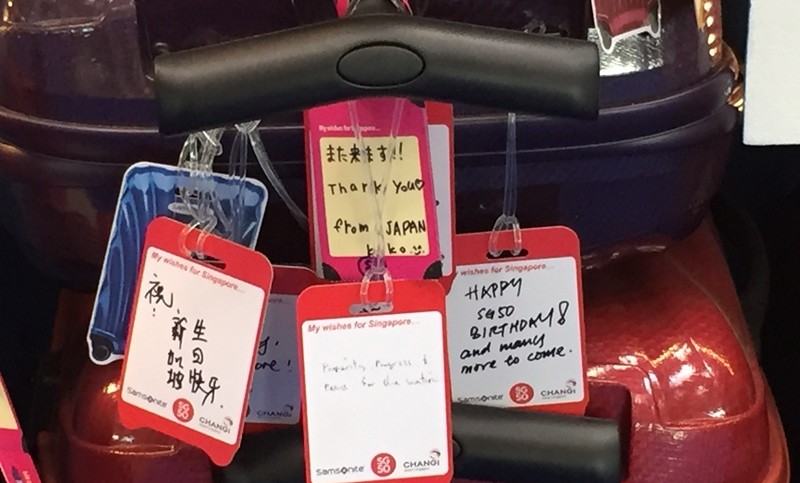 My wishes for Singapore...
また来ます!!
Thank You♡
from JAPAN
My wishes for Singapore...
祝!
新 生
加 日
坡 快乐.
Samsonite SG50 CHANGI
ore!
CHANGI
My wishes for Singapore...
Prosperity, Progress &
Peace for the nation
Samsonite SG50 CHANGI
My wishes for Singapore...
HAPPY
SG50
BIRTHDAY!
and many
more to come.
Samsonite SG50 CHANGI